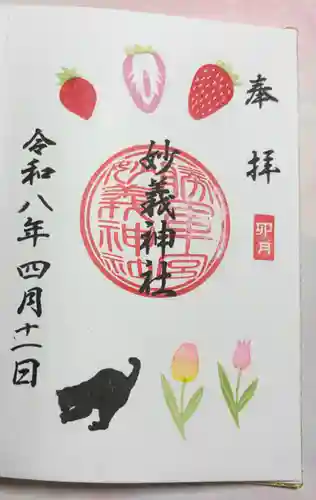 奉拝
卯月
妙義神社
令和八年四月十一日